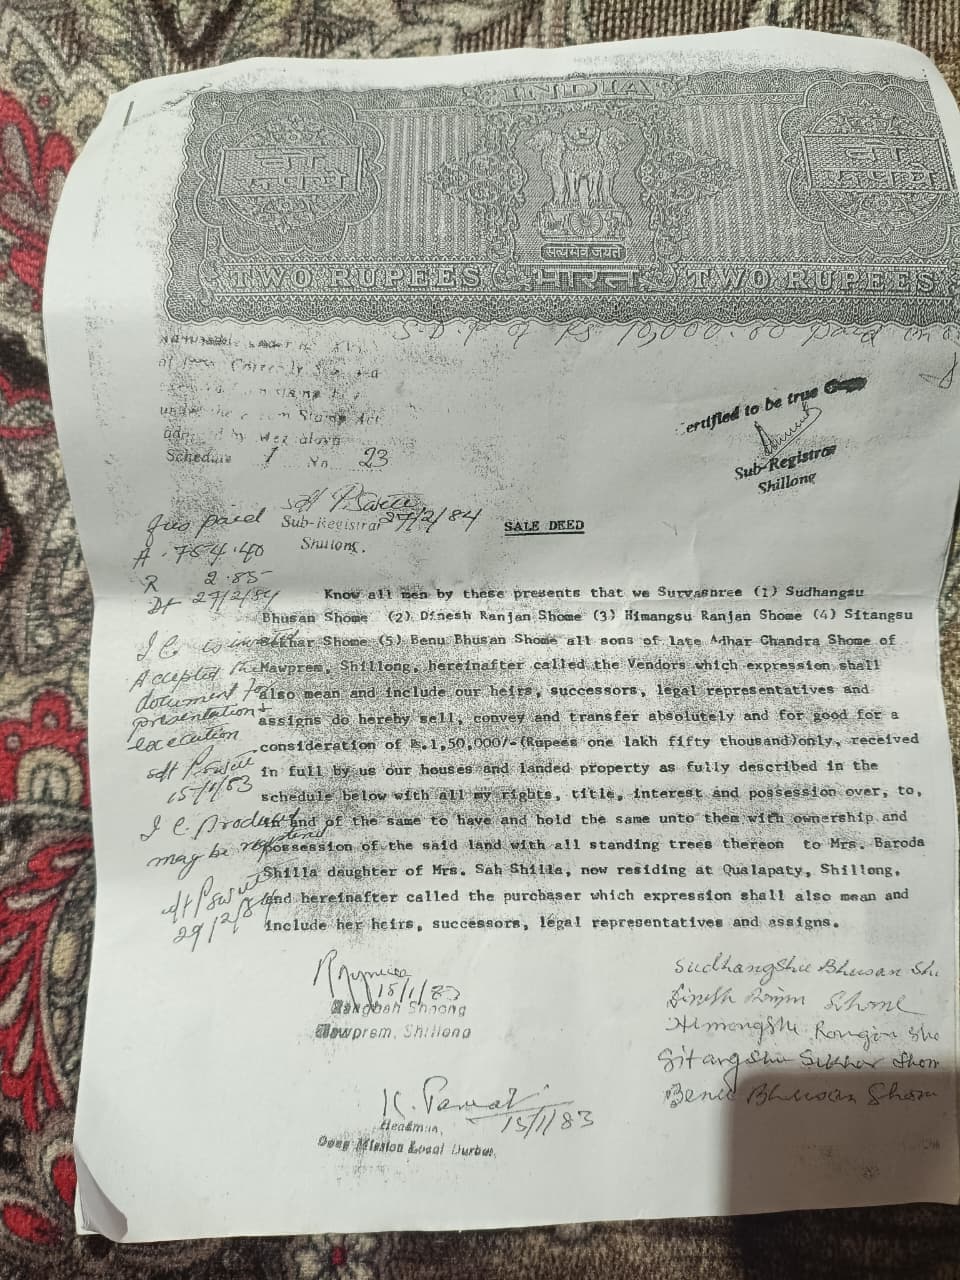 INDIA
दो
रुपये
दो
रुपये
सत्यमेव जयते
TWO RUPEES भारत TWO RUPEES
S.D.P of Rs 10,000.00 paid in
under the Stamp Act
by Meghalaya
Schedule 1 No. 23
Certified to be true Copy
Sub-Registrar
Shillong
Sub-Registrar 27/2/84
Shillong.
Fees paid
A. 754.40
R 2.85
Dt 27/2/84
SALE DEED
Know all men by these presents that we Survashree (1) Sudhangsu
Bhusan Shome (2) Dinesh Ranjan Shome (3) Himangsu Ranjan Shome (4) Sitangsu
Sekhar Shome (5) Benu Bhusan Shome all sons of late Adhar Chandra Shome of
Mawprem, Shillong, hereinafter called the Vendors which expression shall
also mean and include our heirs, successors, legal representatives and
assigns do hereby sell, convey and transfer absolutely and for good for a
consideration of Rs.1,50,000/-(Rupees one lakh fifty thousand)only, received
in full by us our houses and landed property as fully described in the
schedule below with all my rights, title, interest and possession over, to,
in and of the same to have and hold the same unto them with ownership and
possession of the said land with all standing trees thereon to Mrs. Baroda
Shilla daughter of Mrs. Sah Shilla, now residing at Qualapaty, Shillong,
and hereinafter called the purchaser which expression shall also mean and
include her heirs, successors, legal representatives and assigns.
Accepted the
document for
presentation &
execution
15/1/83
may be
29/2/84
15/1/83
Rangbah Shnong
Mawprem, Shillong
15/1/83
Headman,
Mission Local Durbar,
Sudhangshu Bhusan Sho
Dinesh Ranjan Shome
Himangshu Ranjan Sho
Sitangshu Sekhar Shom
Benu Bhusan Shom